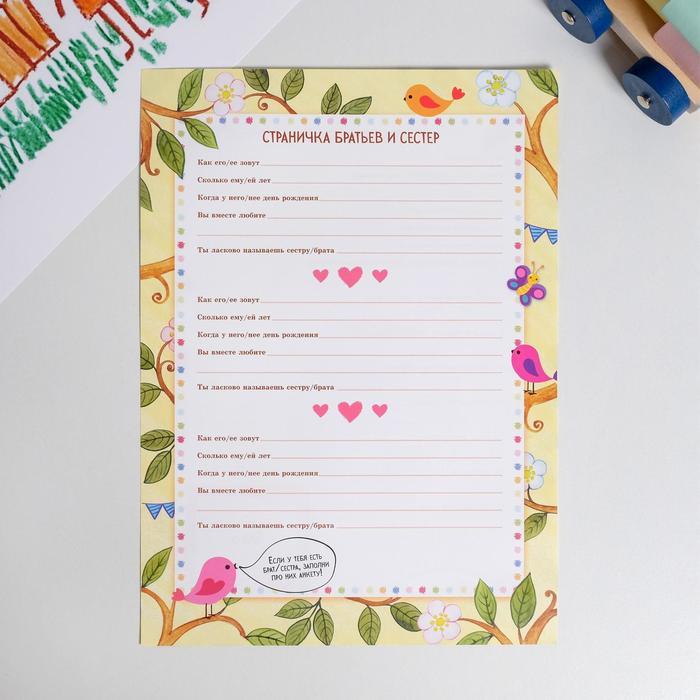 СТРАНИЧКА БРАТЬЕВ И СЕСТЕР
Как его/ее зовут
Сколько ему/ей лет
Когда у него/нее день рождения
Вы вместе любите
Ты ласково называешь сестру/брата
Как его/ее зовут
Сколько ему/ей лет
Когда у него/нее день рождения
Вы вместе любите
Ты ласково называешь сестру/брата
Как его/ее зовут
Сколько ему/ей лет
Когда у него/нее день рождения
Вы вместе любите
Ты ласково называешь сестру/брата
Если у тебя есть
брат/сестра, заполни
про них анкету!